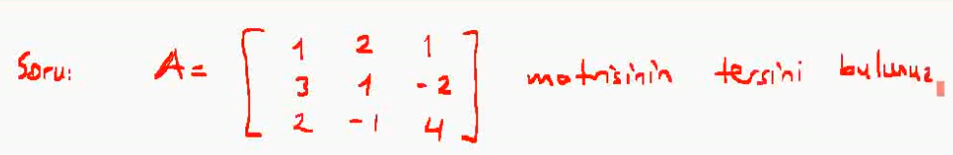 Soru: A = [ 1 2 1
3 1 -2
2 -1 4 ] matrisinin tersini bulunuz.